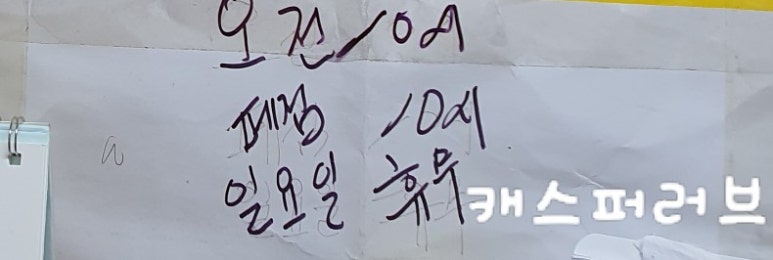 오전 10시
폐점 10시
일요일 휴무
캐스퍼러브